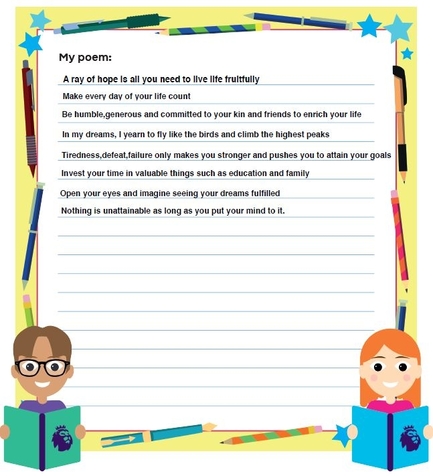 My poem:
A ray of hope is all you need to live life fruitfully
Make every day of your life count
Be humble,generous and committed to your kin and friends to enrich your life
In my dreams, I yearn to fly like the birds and climb the highest peaks
Tiredness,defeat,failure only makes you stronger and pushes you to attain your goals
Invest your time in valuable things such as education and family
Open your eyes and imagine seeing your dreams fulfilled
Nothing is unattainable as long as you put your mind to it.